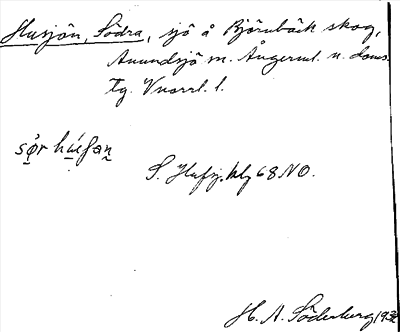 Husjön, Södra, sjö å Björnbäck skog,
Anundsjö sn. Ångerml. n. doms.
tg. Vnorrl. l.
sø̣r hús̱ǝṉ
S. Husj. blg 68 NO.
H. A. Söderberg 1932